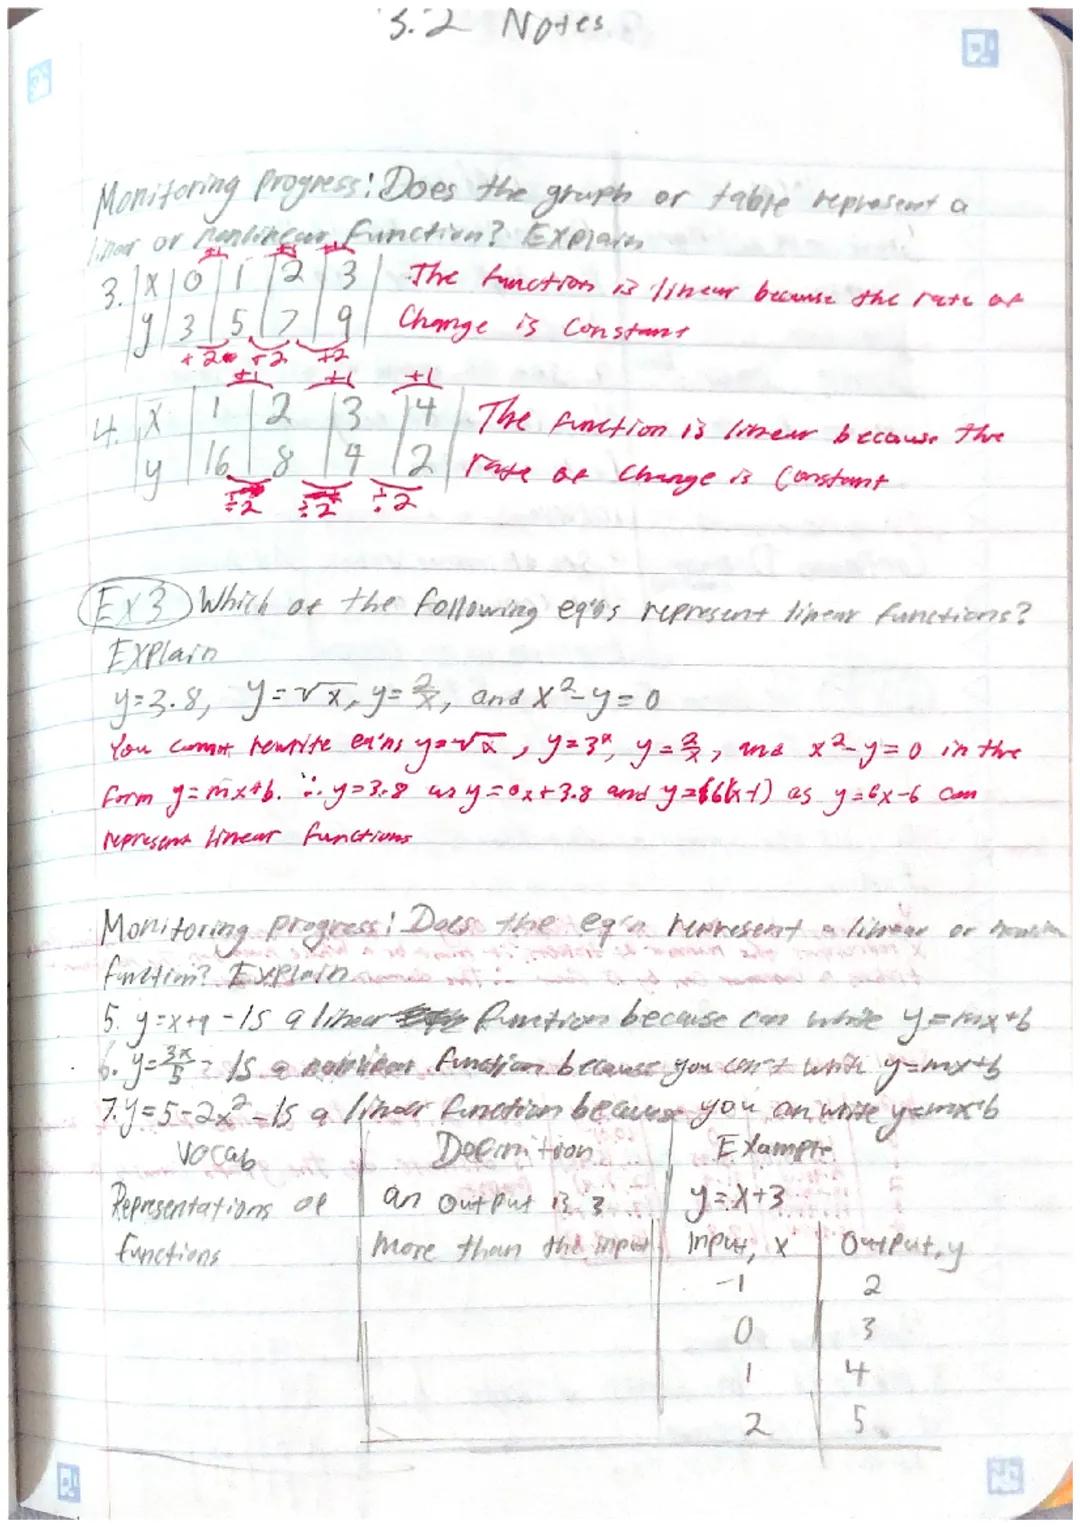 3.2 Notes
Monitoring Progress: Does the graph or table represent a
linear or nonlinear function? Explain
+1 +1 +1
3. x 0 1 2 3 The function is linear because the rate of
y 3 5 7 9 Change is Constant
+2 +2 +2
+1 +1 +1
4. x 1 2 3 4 The function is linear because the
y 16 8 4 2 rate of Change is Constant
÷2 ÷2 ÷2
Ex3 Which of the following eq'ns represent linear functions?
Explain
y=3.8, y=√x, y=2/x, and x²-y=0
You cannot rewrite eq'ns y=√x, y=3ˣ, y=2/x, and x²-y=0 in the
form y=mx+b. ∴ y=3.8 as y=0x+3.8 and y=6(x-1) as y=6x-6 can
represent linear functions
Monitoring Progress: Does the eq'n represent a linear or
function? Explain
5. y=x+9 - Is a linear function because can write y=mx+b
6. y=3x/5 - Is a nonlinear function because you can't write y=mx+b
7. y=5-2x² - Is a linear function because you can write y=mx+b
Vocab Definition Example
Representations of an output is 3 y=x+3
functions more than the input Input, x Output, y
-1 2
0 3
1 4
2 5